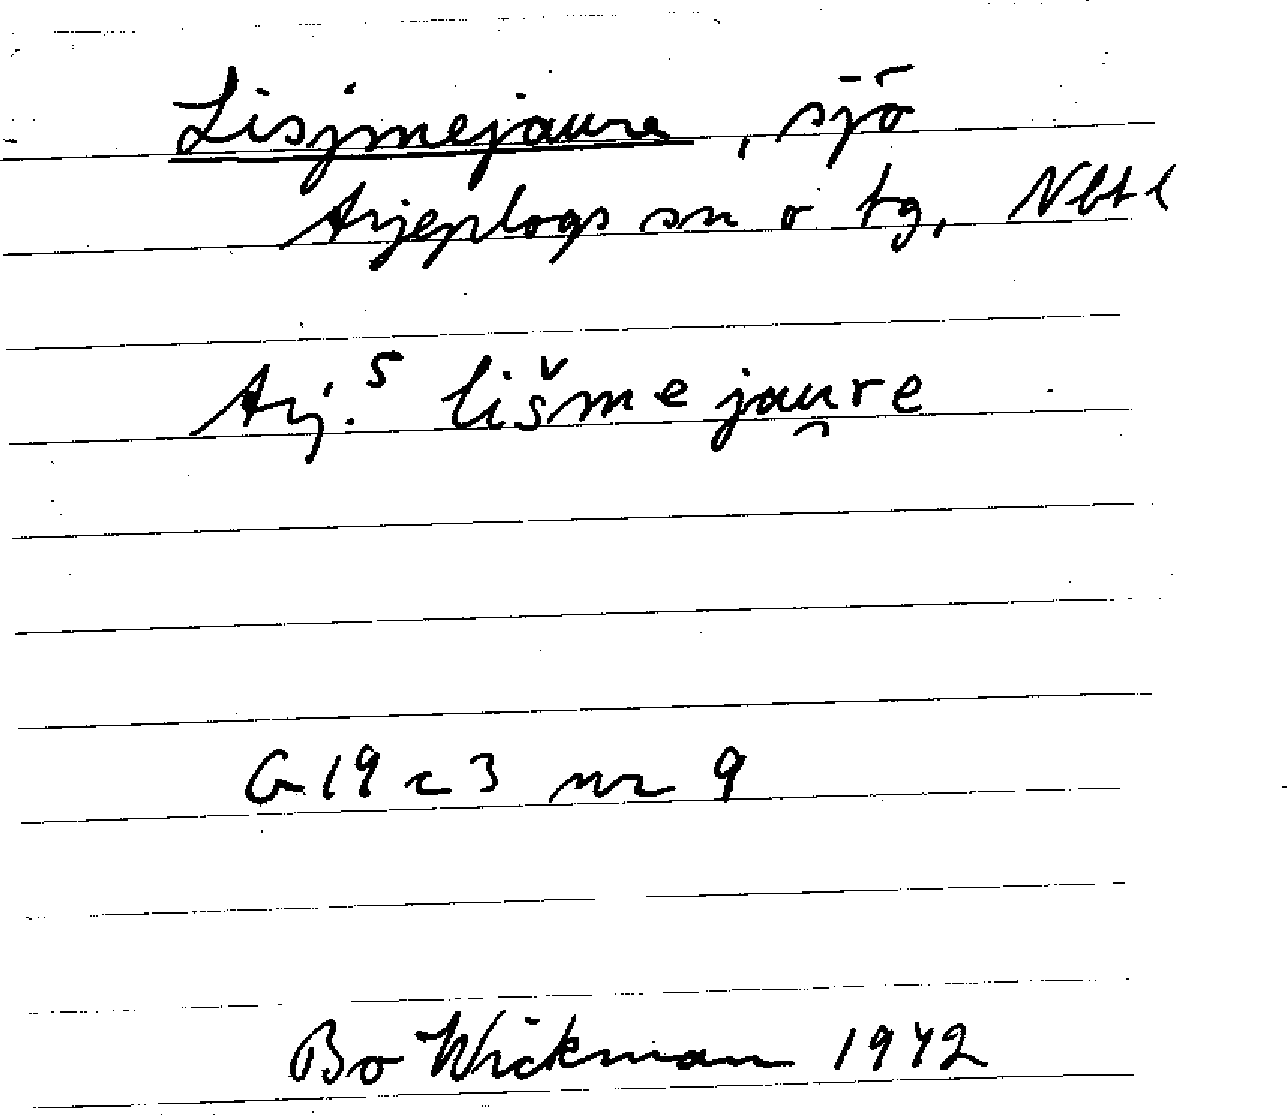 Lisjmejaure, sjö
Arjeplogs sn o tg, Nbtl
Arj.ˢ lišmejau̯re
G 19 c 3 nr 9
Bo Wickman 1942